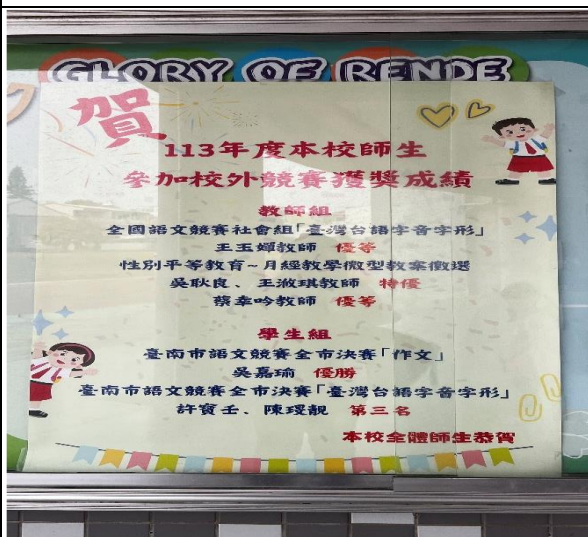 GLORY OF RENDE
賀
113年度本校師生
參加校外競賽獲獎成績
教師組
全國語文競賽社會組「臺灣台語字音字形」
王玉嬋教師 優等
性別平等教育~月經教學微型教案徵選
吳耿良、王漵琪教師 特優
蔡幸吟教師 優等
學生組
臺南市語文競賽全市決賽「作文」
吳嘉瑜 優勝
臺南市語文競賽全市決賽「臺灣台語字音字形」
許寶壬、陳瑷靚 第三名
本校全體師生恭賀